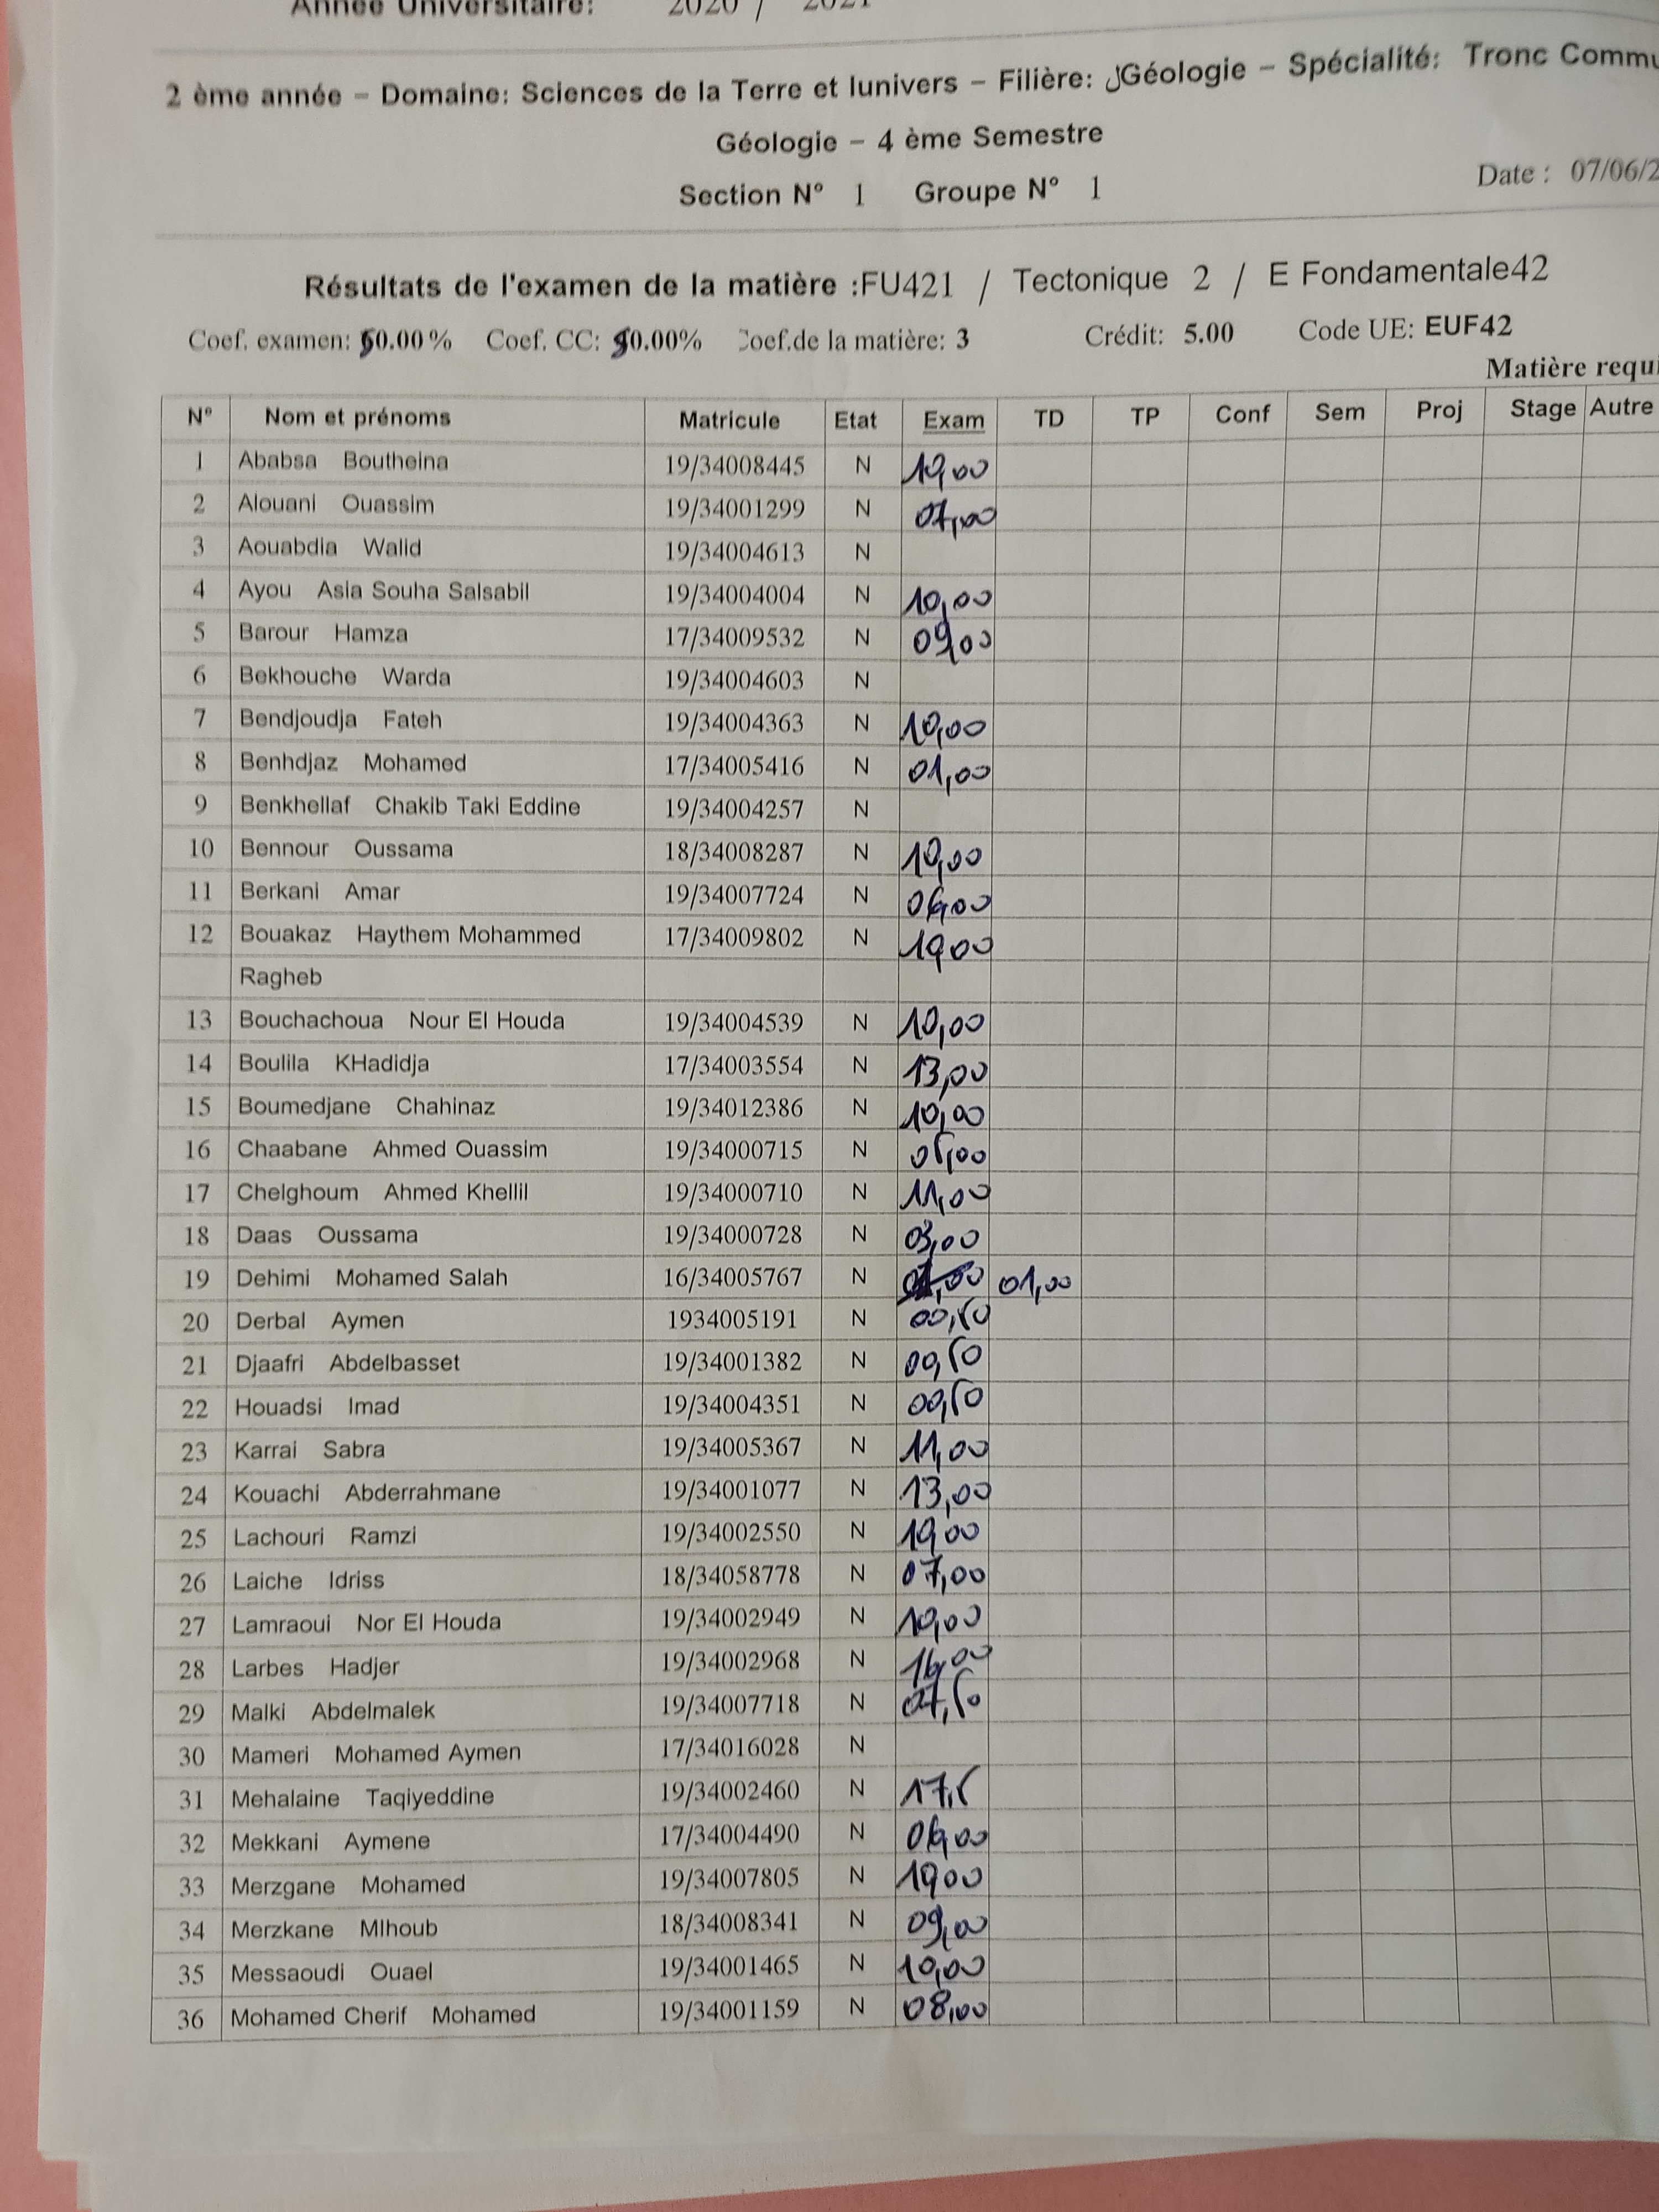 Année Universitaire: 2020 / 2021
2 ème année – Domaine: Sciences de la Terre et lunivers – Filière: لGéologie – Spécialité: Tronc Commu
Géologie – 4 ème Semestre
Section N° 1 Groupe N° 1
Date : 07/06/2
Résultats de l'examen de la matière :FU421 / Tectonique 2 / E Fondamentale42
Coef. examen: 0.00% Coef. CC: 0.00% Coef.de la matière: 3 Crédit: 5.00 Code UE: EUF42
Matière requi
N° Nom et prénoms Matricule Etat Exam TD TP Conf Sem Proj Stage Autre
1 Ababsa Boutheina 19/34008445 N 10,00
2 Alouani Ouassim 19/34001299 N 07,00
3 Aouabdia Walid 19/34004613 N
4 Ayou Asia Souha Salsabil 19/34004004 N 10,00
5 Barour Hamza 17/34009532 N 09,00
6 Bekhouche Warda 19/34004603 N
7 Bendjoudja Fateh 19/34004363 N 10,00
8 Benhdjaz Mohamed 17/34005416 N 01,00
9 Benkhellaf Chakib Taki Eddine 19/34004257 N
10 Bennour Oussama 18/34008287 N 10,00
11 Berkani Amar 19/34007724 N 06,00
12 Bouakaz Haythem Mohammed 17/34009802 N 10,00
Ragheb
13 Bouchachoua Nour El Houda 19/34004539 N 10,00
14 Boulila KHadidja 17/34003554 N 13,00
15 Boumedjane Chahinaz 19/34012386 N 10,00
16 Chaabane Ahmed Ouassim 19/34000715 N 05,00
17 Chelghoum Ahmed Khellil 19/34000710 N 11,00
18 Daas Oussama 19/34000728 N 03,00
19 Dehimi Mohamed Salah 16/34005767 N 01,00
20 Derbal Aymen 1934005191 N 00,50
21 Djaafri Abdelbasset 19/34001382 N 00,50
22 Houadsi Imad 19/34004351 N 00,50
23 Karrai Sabra 19/34005367 N 11,00
24 Kouachi Abderrahmane 19/34001077 N 13,00
25 Lachouri Ramzi 19/34002550 N 10,00
26 Laiche Idriss 18/34058778 N 07,00
27 Lamraoui Nor El Houda 19/34002949 N 10,00
28 Larbes Hadjer 19/34002968 N 16,00
29 Malki Abdelmalek 19/34007718 N 07,50
30 Mameri Mohamed Aymen 17/34016028 N
31 Mehalaine Taqiyeddine 19/34002460 N 17,5
32 Mekkani Aymene 17/34004490 N 06,00
33 Merzgane Mohamed 19/34007805 N 10,00
34 Merzkane Mlhoub 18/34008341 N 09,00
35 Messaoudi Ouael 19/34001465 N 10,00
36 Mohamed Cherif Mohamed 19/34001159 N 08,00